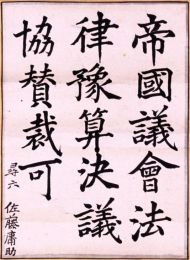 帝國議會法
律豫算決議
協賛裁可
尋六 佐藤庸助